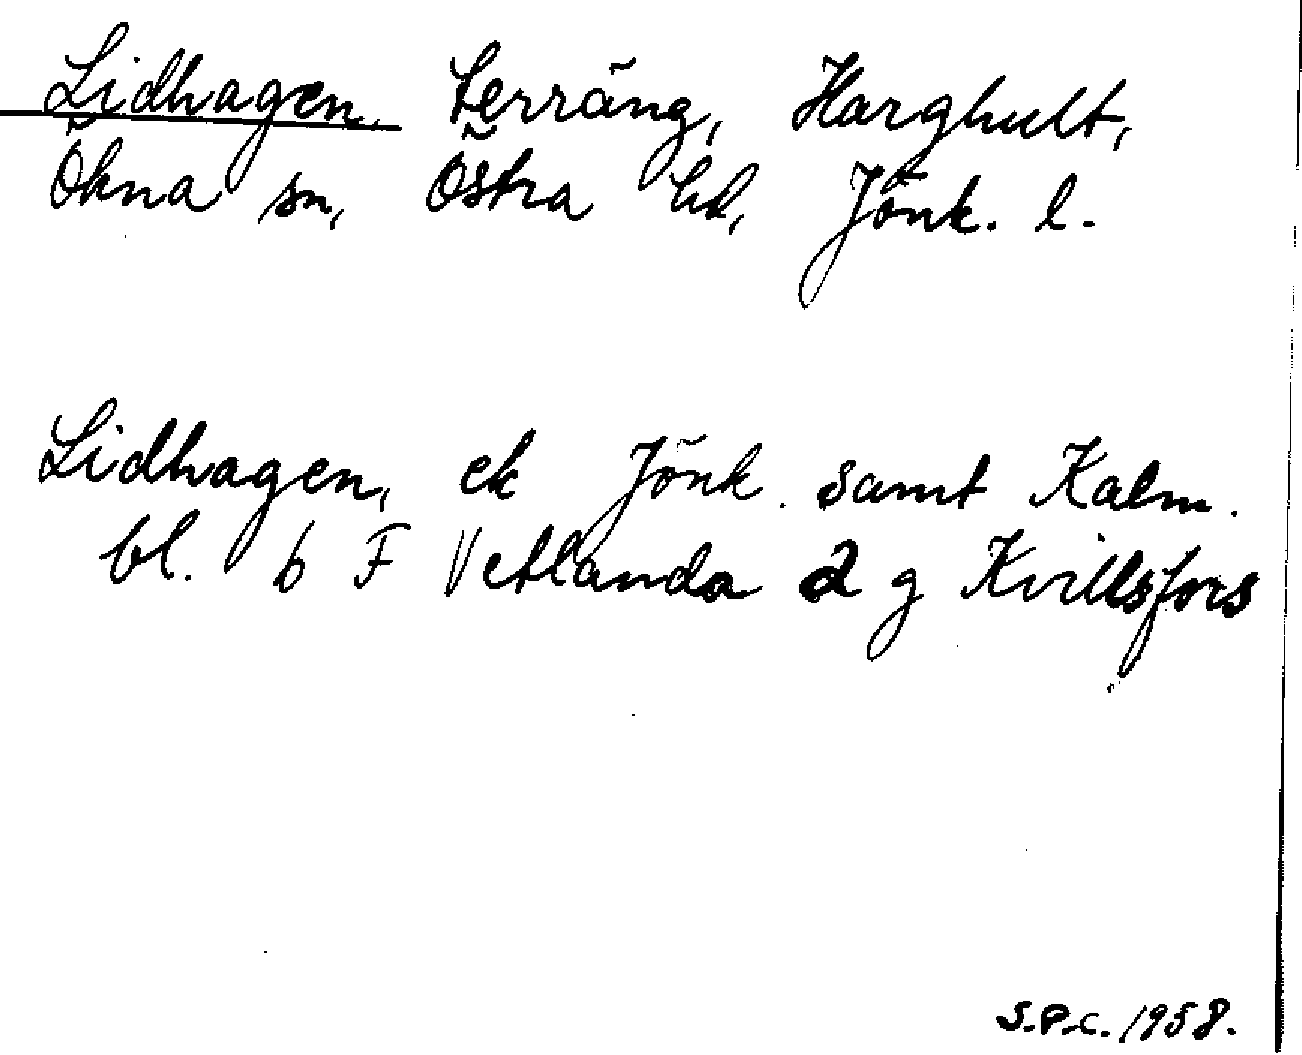 Lidhagen, terräng, Harghult,
Ökna sn, Östra hd, Jönk. l.
Lidhagen, ek Jönk. samt Kalm.
bl. 6 F Vetlanda 2 g Kvillsfors
S.P.C. 1958.